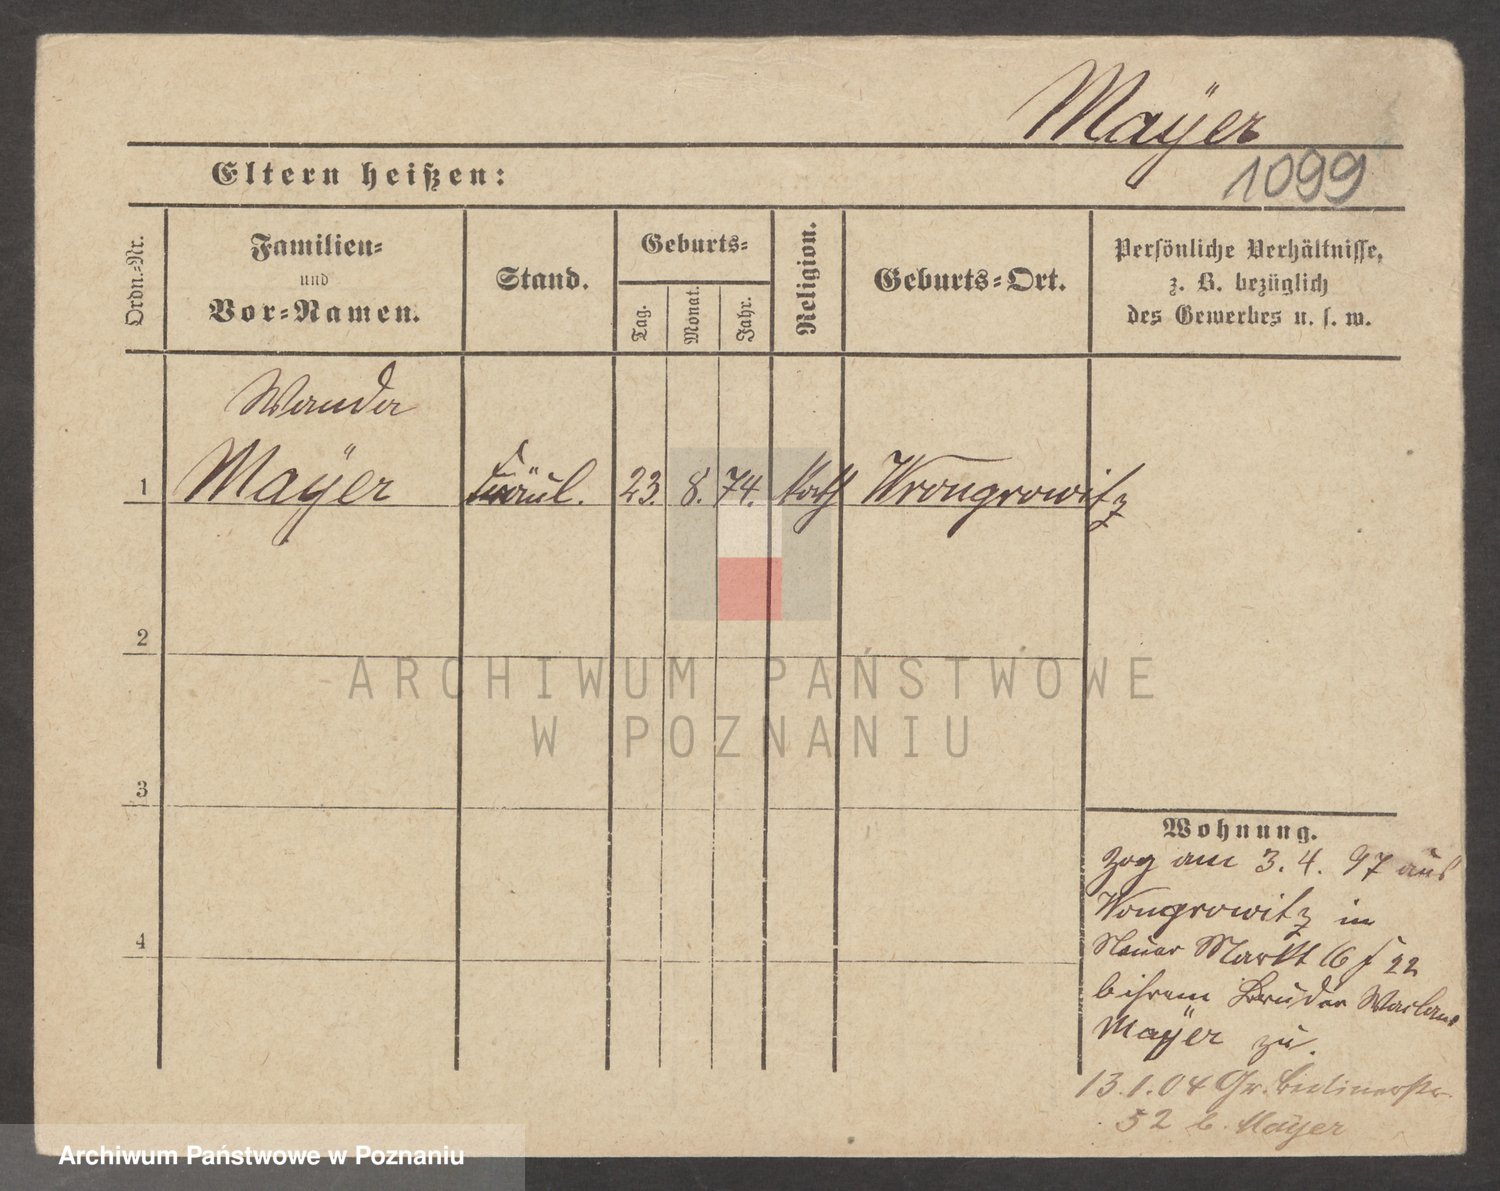 Mayer
1099
Eltern heißen:
Ordn.-Nr.
Familien-
und
Vor-Namen.
Stand.
Geburts-
Tag.
Monat.
Jahr.
Religion.
Geburts-Ort.
Persönliche Verhältnisse,
z. B. bezüglich
des Gewerbes u. s. w.
Wanda
1 Mayer Fräul. 23. 8. 74. kath Wrongrowitz
2
3
4
ARCHIWUM PAŃSTWOWE
W POZNANIU
Wohnung.
Zog am 3. 4. 97 aus
Wongrowitz in
Neuer Markt 16 22
b ihrem Bruder
Mayer zu.
13.1.04 Gr. Berlinerstr.
52 b. Mayer
Archiwum Państwowe w Poznaniu